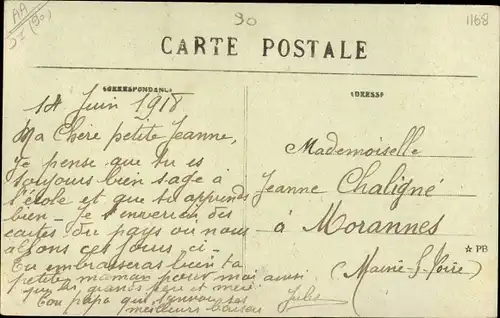 AA
(90)
90
1168
CARTE POSTALE
CORRESPONDANCE
ADRESSE
14 Juin 1918
Ma Chère petite Jeanne,
Je pense que tu es
toujours bien sage à
l'école et que tu apprends
bien - Je t'enverrai des
cartes du pays ou nous
allons ces jours ci -
Tu embrasseras bien ta
petite maman pour moi ainsi
que tes grands père et mère.
Ton papa qui t'envoi ses
meilleurs baisers
Jules
Mademoiselle
Jeanne Chaligné
à Morannes
★ PB
(Maine-&-Loire)